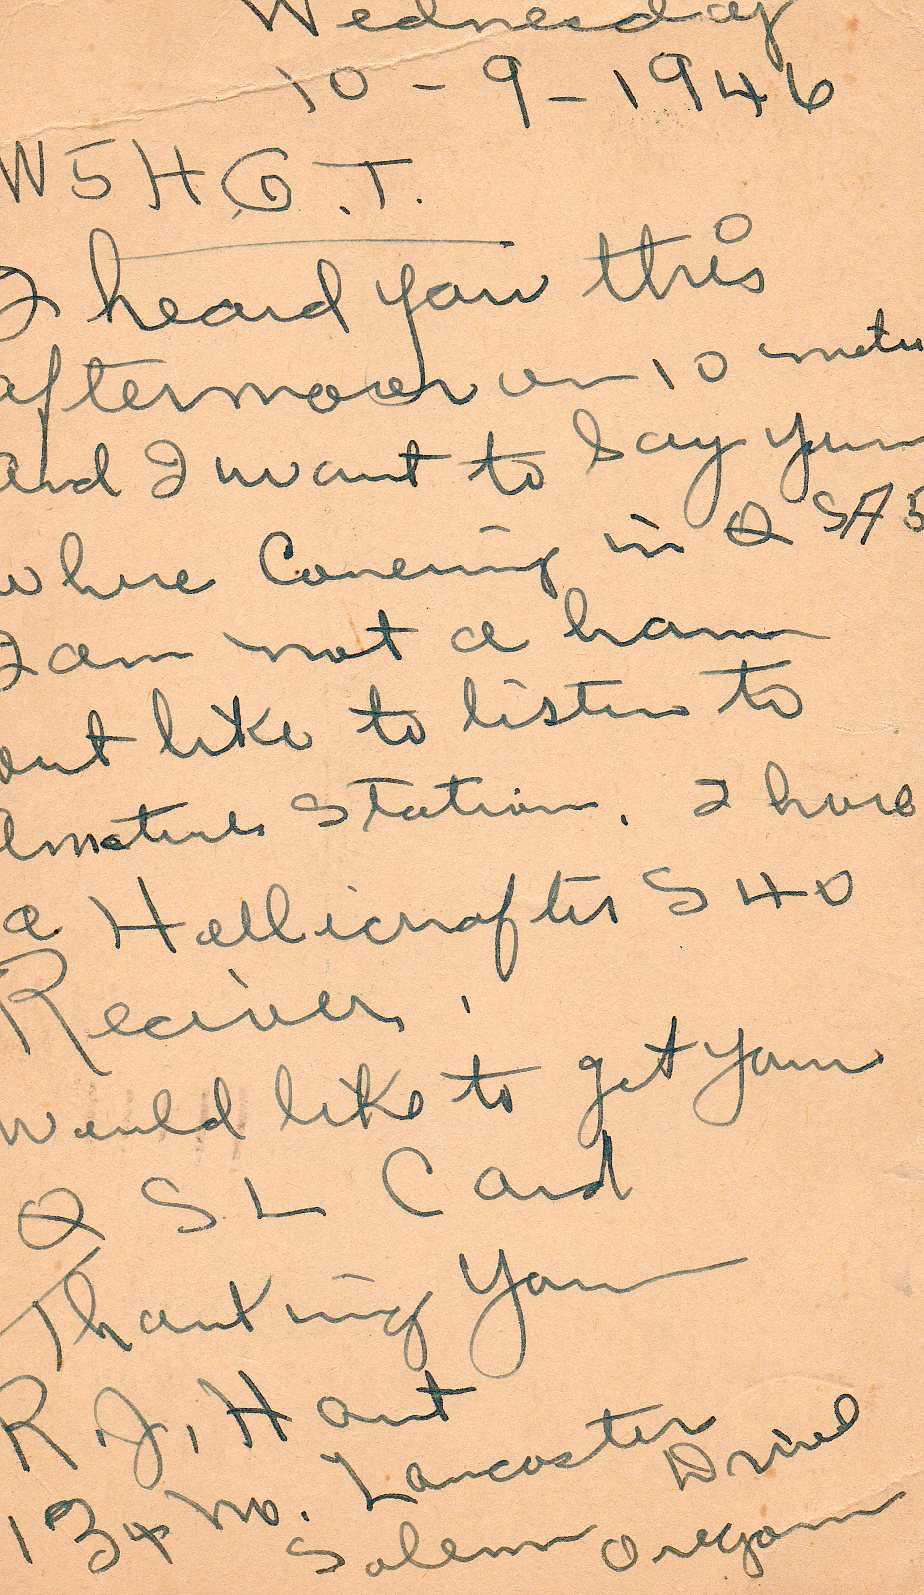 Wednesday
10-9-1946
W5HGT.
I heard you this
afternoon on 10 meter
and I want to say you
where Comeing in QSA5
I am not a ham
but like to listen to
Amature Station. I have
a Hallicrafter S40
Reciver.
Would like to get your
QSL Card
Thanking You
R.J. Hart
134 No. Lancaster
Drive
Salem Oregon